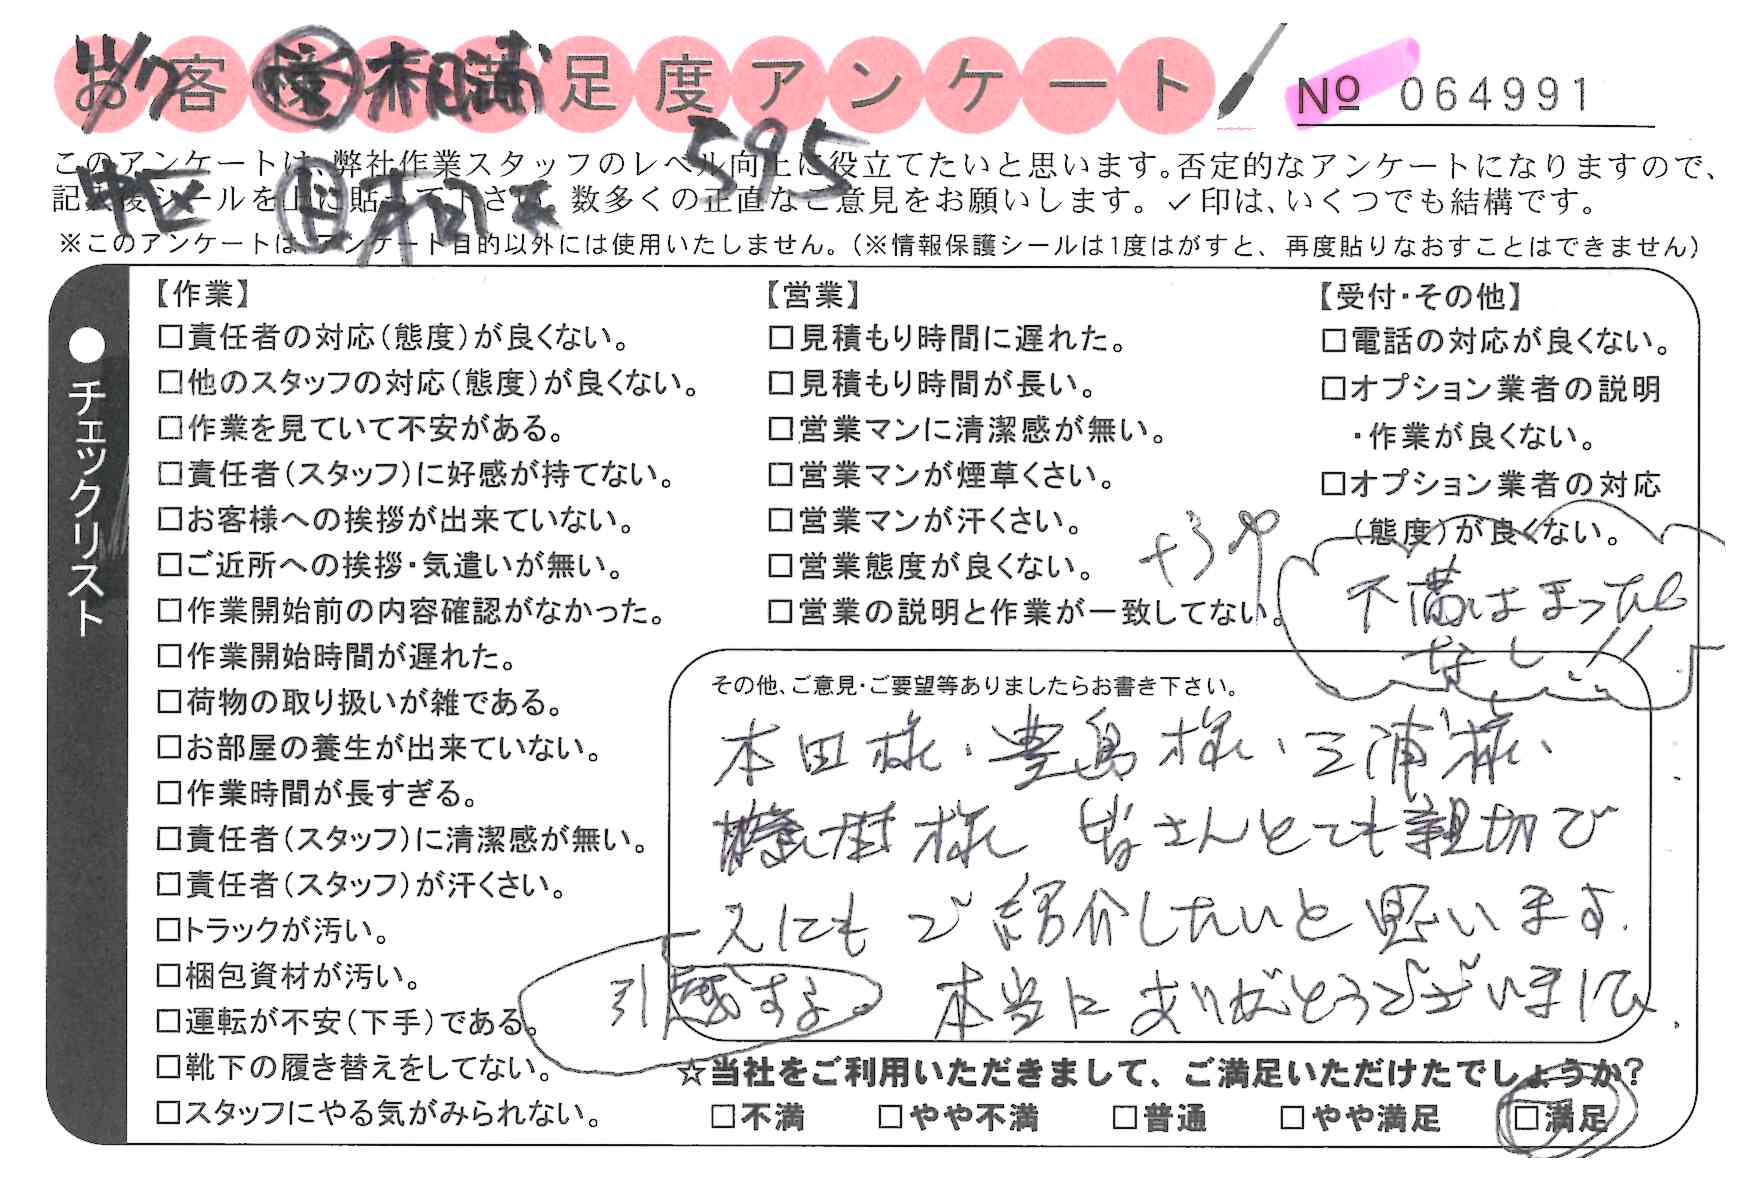 お客様満足度アンケート
№ 064991
595
このアンケートは、弊社作業スタッフのレベル向上に役立てたいと思います。否定的なアンケートになりますので、
記入後シールを上に貼って下さい。数多くの正直なご意見をお願いします。✓印は、いくつでも結構です。
※このアンケートは、アンケート目的以外には使用いたしません。(※情報保護シールは1度はがすと、再度貼りなおすことはできません)
●チェックリスト
【作業】
□責任者の対応(態度)が良くない。
□他のスタッフの対応(態度)が良くない。
□作業を見ていて不安がある。
□責任者(スタッフ)に好感が持てない。
□お客様への挨拶が出来ていない。
□ご近所への挨拶・気遣いが無い。
□作業開始前の内容確認がなかった。
□作業開始時間が遅れた。
□荷物の取り扱いが雑である。
□お部屋の養生が出来ていない。
□作業時間が長すぎる。
□責任者(スタッフ)に清潔感が無い。
□責任者(スタッフ)が汗くさい。
□トラックが汚い。
□梱包資材が汚い。
□運転が不安(下手)である。
□靴下の履き替えをしてない。
□スタッフにやる気がみられない。
【営業】
□見積もり時間に遅れた。
□見積もり時間が長い。
□営業マンに清潔感が無い。
□営業マンが煙草くさい。
□営業マンが汗くさい。
□営業態度が良くない。
□営業の説明と作業が一致してない。
【受付・その他】
□電話の対応が良くない。
□オプション業者の説明
・作業が良くない。
□オプション業者の対応
(態度)が良くない。
不満はまったく
なし!!
その他、ご意見・ご要望等ありましたらお書き下さい。
本田様・豊島様、三浦様、
様 皆さんとても親切で
人にもご紹介したいと思います.
本当にありがとうございました.
☆当社をご利用いただきまして、ご満足いただけたでしょうか?
□不満 □やや不満 □普通 □やや満足 □満足